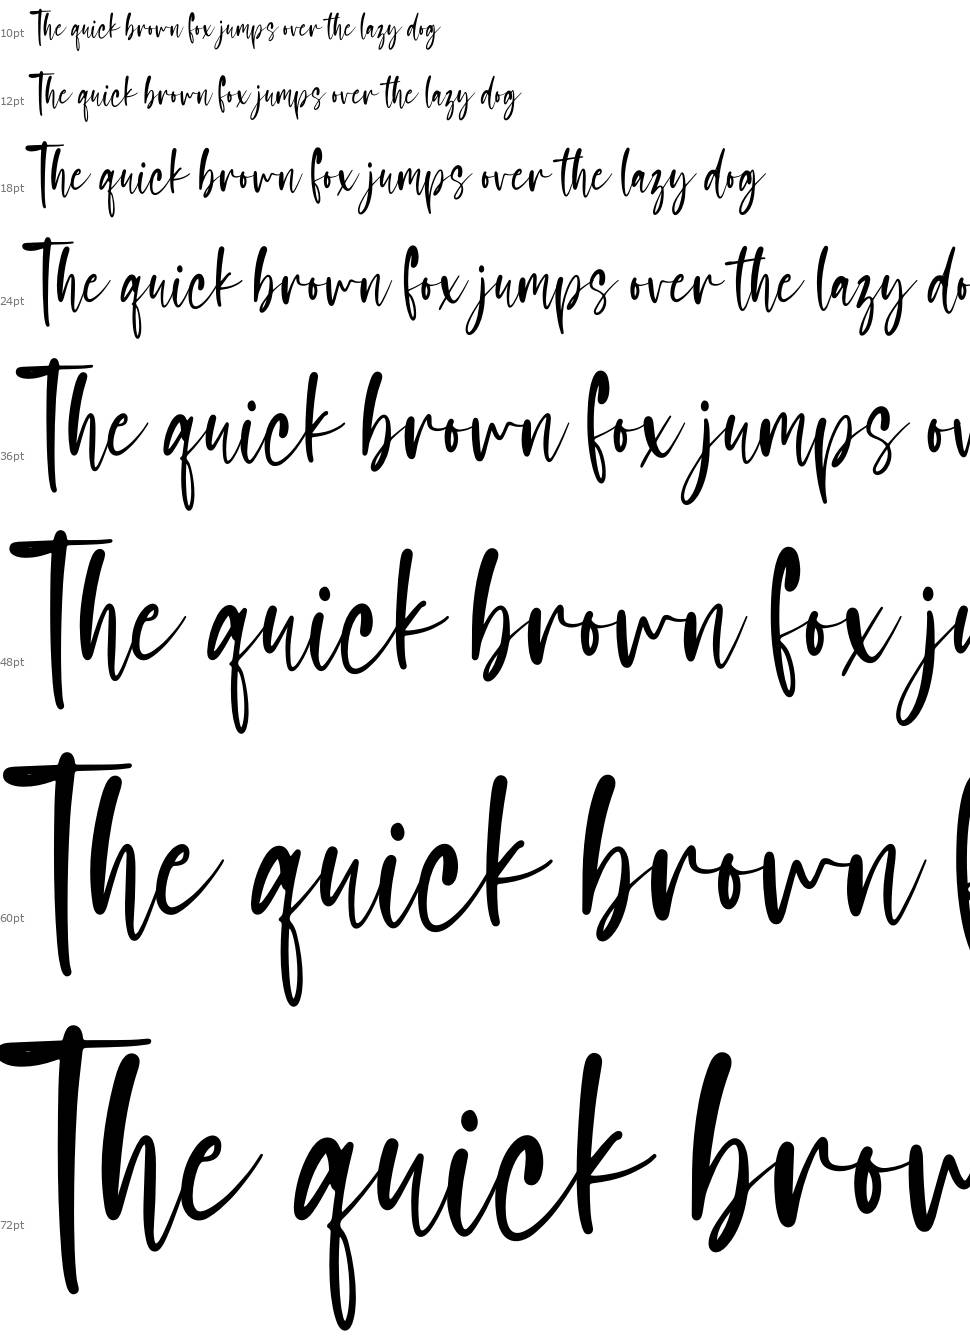 10pt The quick brown fox jumps over the lazy dog
12pt The quick brown fox jumps over the lazy dog
18pt The quick brown fox jumps over the lazy dog
24pt The quick brown fox jumps over the lazy do
36pt The quick brown fox jumps ov
48pt The quick brown fox ju
60pt The quick brown f
72pt The quick brow